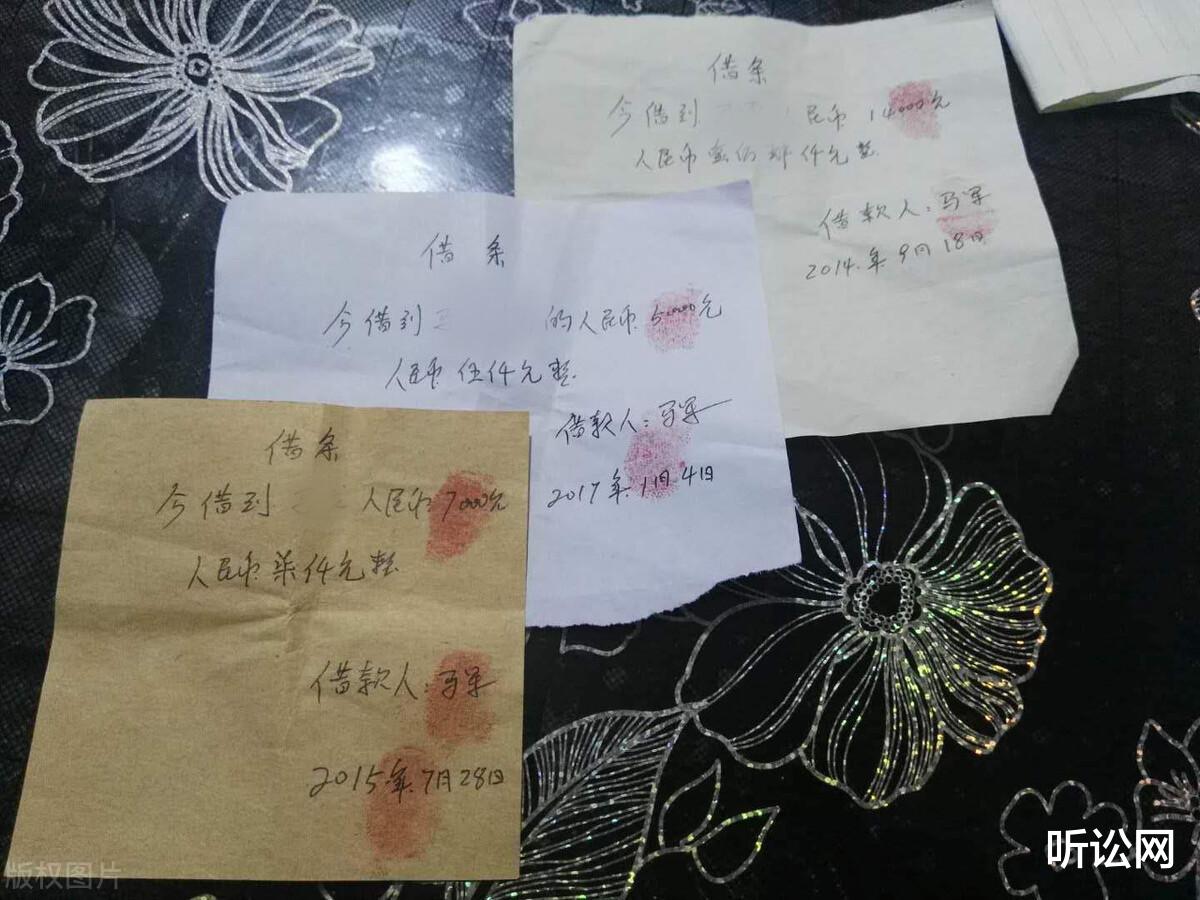 借条
今借到 民币 14000元
人民币 仟元整
借款人:马军
2014年9月18日
借条
今借到 的人民币 5000元
人民币伍仟元整
借款人:马军
2017年11月4日
借条
今借到 人民币 7000元
人民币柒仟元整
借款人:马军
2015年7月28日
听讼网
版权图片